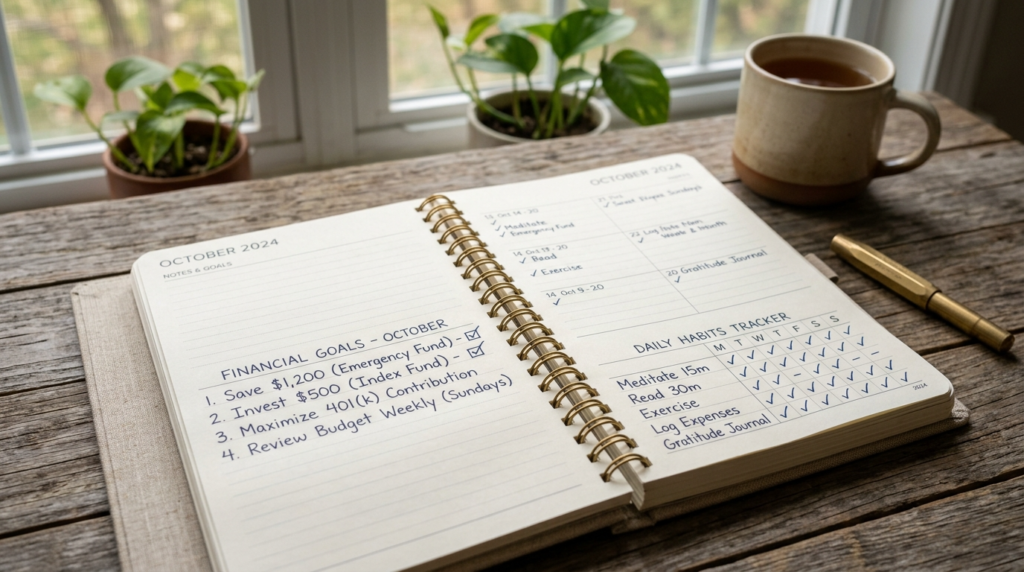 OCTOBER 2024
NOTES & GOALS
FINANCIAL GOALS - OCTOBER
1. Save $1,200 (Emergency Fund) - ☑
2. Invest $500 (Index Fund) - ☑
3. Maximize 401(k) Contribution
4. Review Budget Weekly (Sundays)
OCTOBER 2024
Oct 14 - 20
✓ Meditate
✓ Emergency Fund
✓ Read
✓ Exercise
14 Oct 9 - 20
✓
Sundays
20 Gratitude Journal
✓
DAILY HABITS TRACKER
M T W T F S S
Meditate 15m
Read 30m
Exercise
Log Expenses
Gratitude Journal
2024